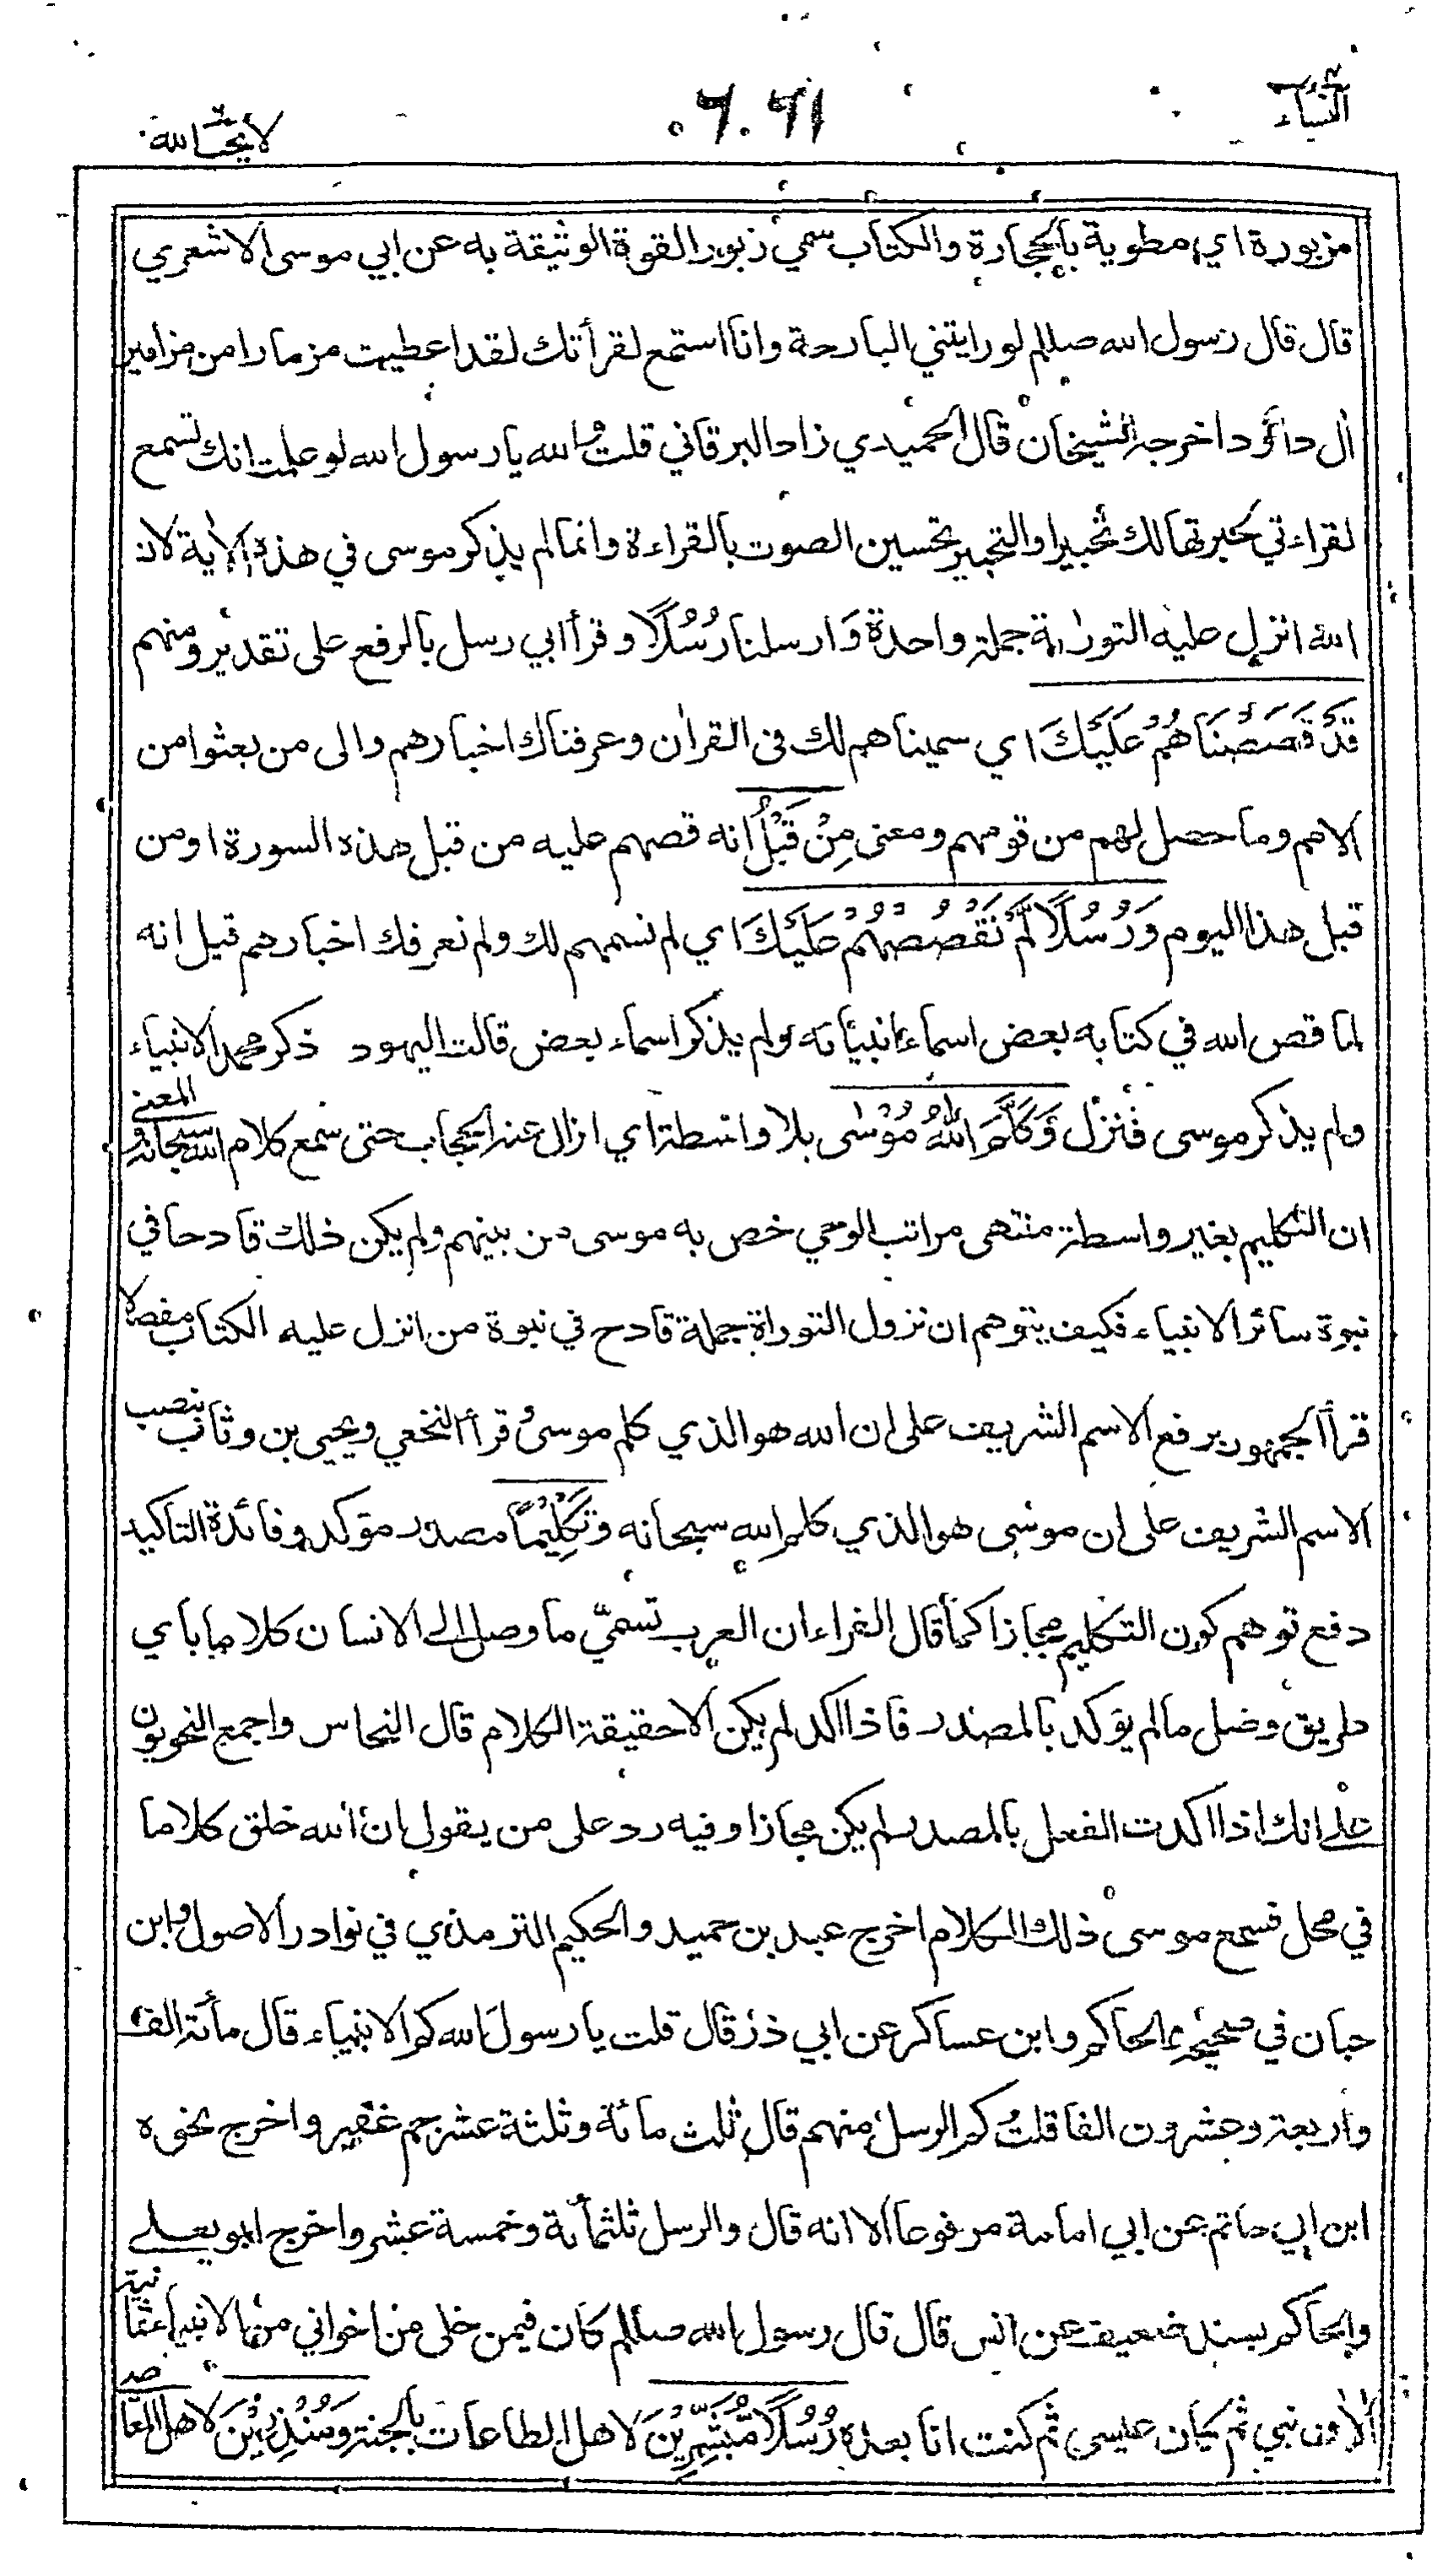 النساء
٦٠٦١
لا يحب الله
مزبورة اي مطوية بالحجارة والكتاب سمي زبورا لقوة الوثيقة به عن ابي موسى الاشعري
قال قال رسول الله صللم لو رايتني البارحة وانا استمع لقرأتك لقد اعطيت مزمارا من مزامير
آل داؤد اخرجه الشيخان قال الحميدي زاد البرقاني قلت والله يا رسول الله لو علمت انك تسمع
لقراءتي لحبرتها لك تحبيرا والتحبير تحسين الصوت بالقراءة وانما لم يذكر موسى في هذه الآية لان
الله انزل عليه التوراة جملة واحدة وَارسلنا رُسُلًا وقرأ ابي رسل بالرفع على تقدير ومنهم
قَدْ قَصَصْنَاهُمْ عَلَيْكَ اي سميناهم لك فى القرآن وعرفناك اخبارهم والى من بعثوا من
الامم وما حصل لهم من قومهم ومعنى مِنْ قَبْلُ انه قصهم عليه من قبل هذه السورة او من
قبل هذا اليوم وَرُسُلًا لَّمْ نَقْصُصْهُمْ عَلَيْكَ اي لم نسمهم لك ولم نعرفك اخبارهم قيل انه
لما قص الله في كتابه بعض اسماء انبيائه ولم يذكر اسماء بعض قالت اليهود ذكر محمد الانبياء
ولم يذكر موسى فنزل وَكَلَّمَ اللهُ مُوْسٰى بلا واسطة اي ازال عنه الحجاب حتى سمع كلام الله سبحانه و المعنى
ان التكليم بغير واسطة منتهى مراتب الوحي خص به موسى من بينهم ولم يكن ذلك قادحا في
نبوة سائر الانبياء فكيف يتوهم ان نزول التوراة جملة قادح في نبوة من انزل عليه الكتاب مفصلا
قرأ الجمهور برفع الاسم الشريف على ان الله هو الذي كلم موسى وقرأ النخعي ويحيى بن وثاب بنصب
الاسم الشريف على ان موسى هو الذي كلم الله سبحانه وتَكْلِيْمًا مصدر مؤكد وفائدة التاكيد
دفع توهم كون التكليم مجازا كما قال الفراء ان العرب تسمي ما وصل الى الانسان كلاما باي
طريق وصل ما لم يؤكد بالمصدر فاذا اكد لم يكن الا حقيقة الكلام قال النحاس واجمع النحويون
على انك اذا اكدت الفعل بالمصدر لم يكن مجازا وفيه رد على من يقول ان الله خلق كلاما
في محل فسمع موسى ذلك الكلام اخرج عبد بن حميد والحكيم الترمذي في نوادر الاصول وابن
حبان في صحيحه والحاكم وابن عساكر عن ابي ذر قال قلت يا رسول الله كم الانبياء قال مأئة الف
واربعة وعشرون الفا قلت كم الرسل منهم قال ثلث مائة وثلثة عشر جم غفير واخرج نحوه
ابن ابي حاتم عن ابي امامة مرفوعا الا انه قال والرسل ثلثمأئة وخمسة عشر واخرج ابو يعلى
والحاكم بسند ضعيف عن انس قال قال رسول الله صللم كان فيمن خلى من اخواني من الانبياء ثمانية
آلاف نبي ثم كان عيسى ثم كنت انا بعده رُسُلًا مُّبَشِّرِيْنَ لاهل الطاعات بالجنة وَمُنْذِرِيْنَ لاهل المعاصي